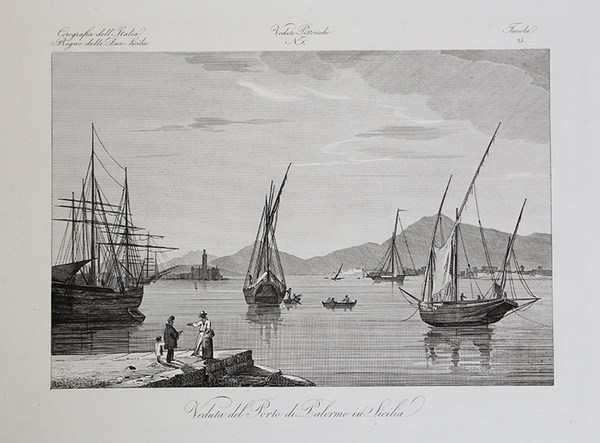 Corografia dell'Italia
Regno delle Due Sicilie
Vedute Pittoriche
N. 1.
Tavola
25.
Veduta del Porto di Palermo in Sicilia